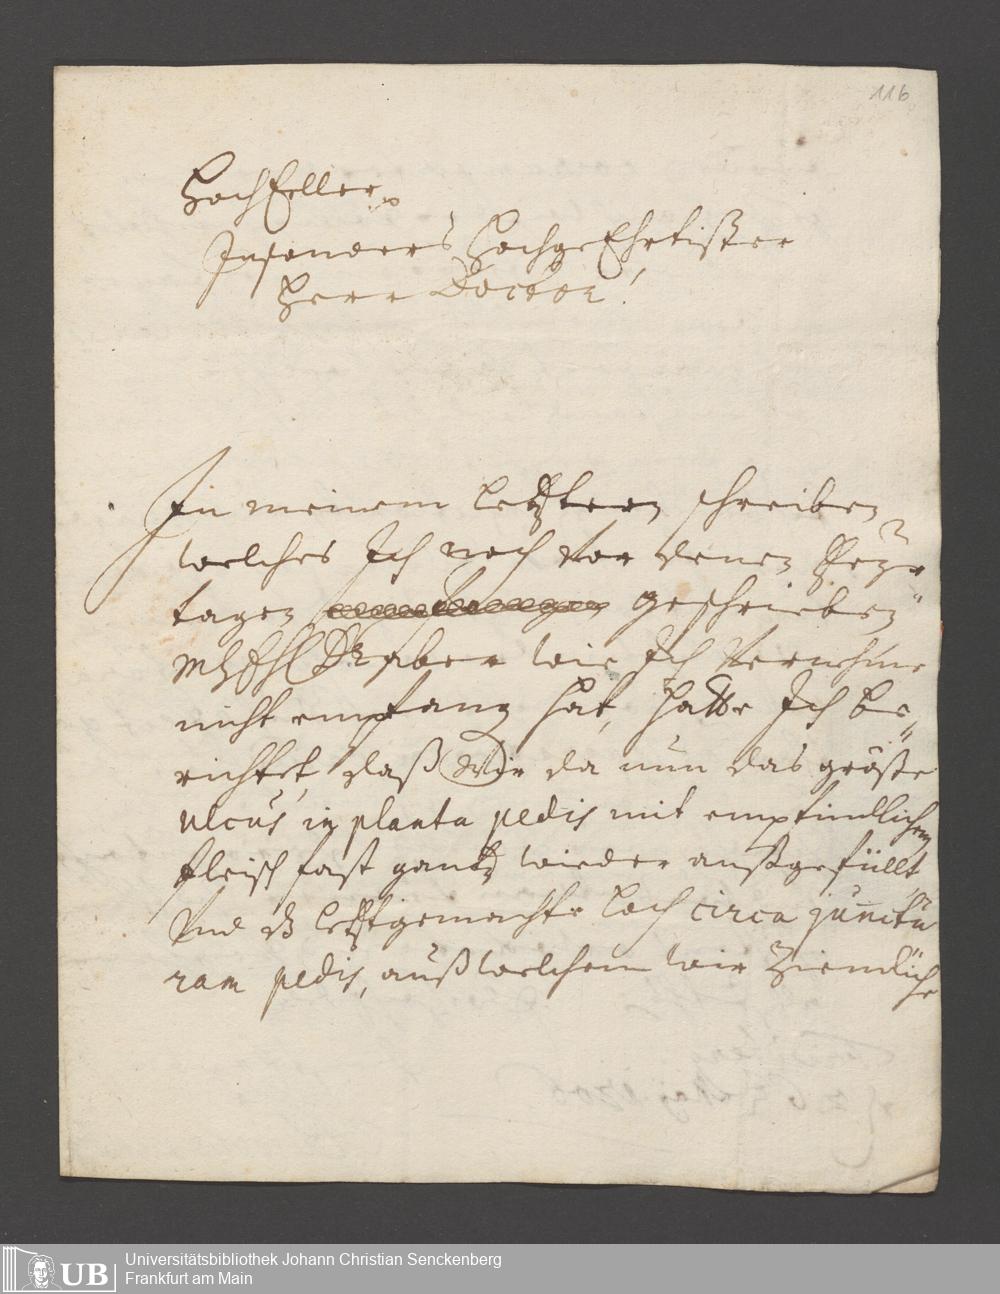 116
HochEdller
Insonders HochgeEhrtister
Herr Doctor!
In meinem letztern schreiben
welches Ich noch vor denen Feyr
tagen geschrieben
aber wie Ich Vernehme
nicht empfang hat, hatte Ich be„
richtet, daß Wir da nun das gröste
ulcus in planta pedis mit empfindlichem
fleisch fast gantz wieder außgefüllt
Und dß letztgemachte loch circa junctu
ram pedis, auß welchem wir Ziemliche
Universitätsbibliothek Johann Christian Senckenberg
Frankfurt am Main
UB